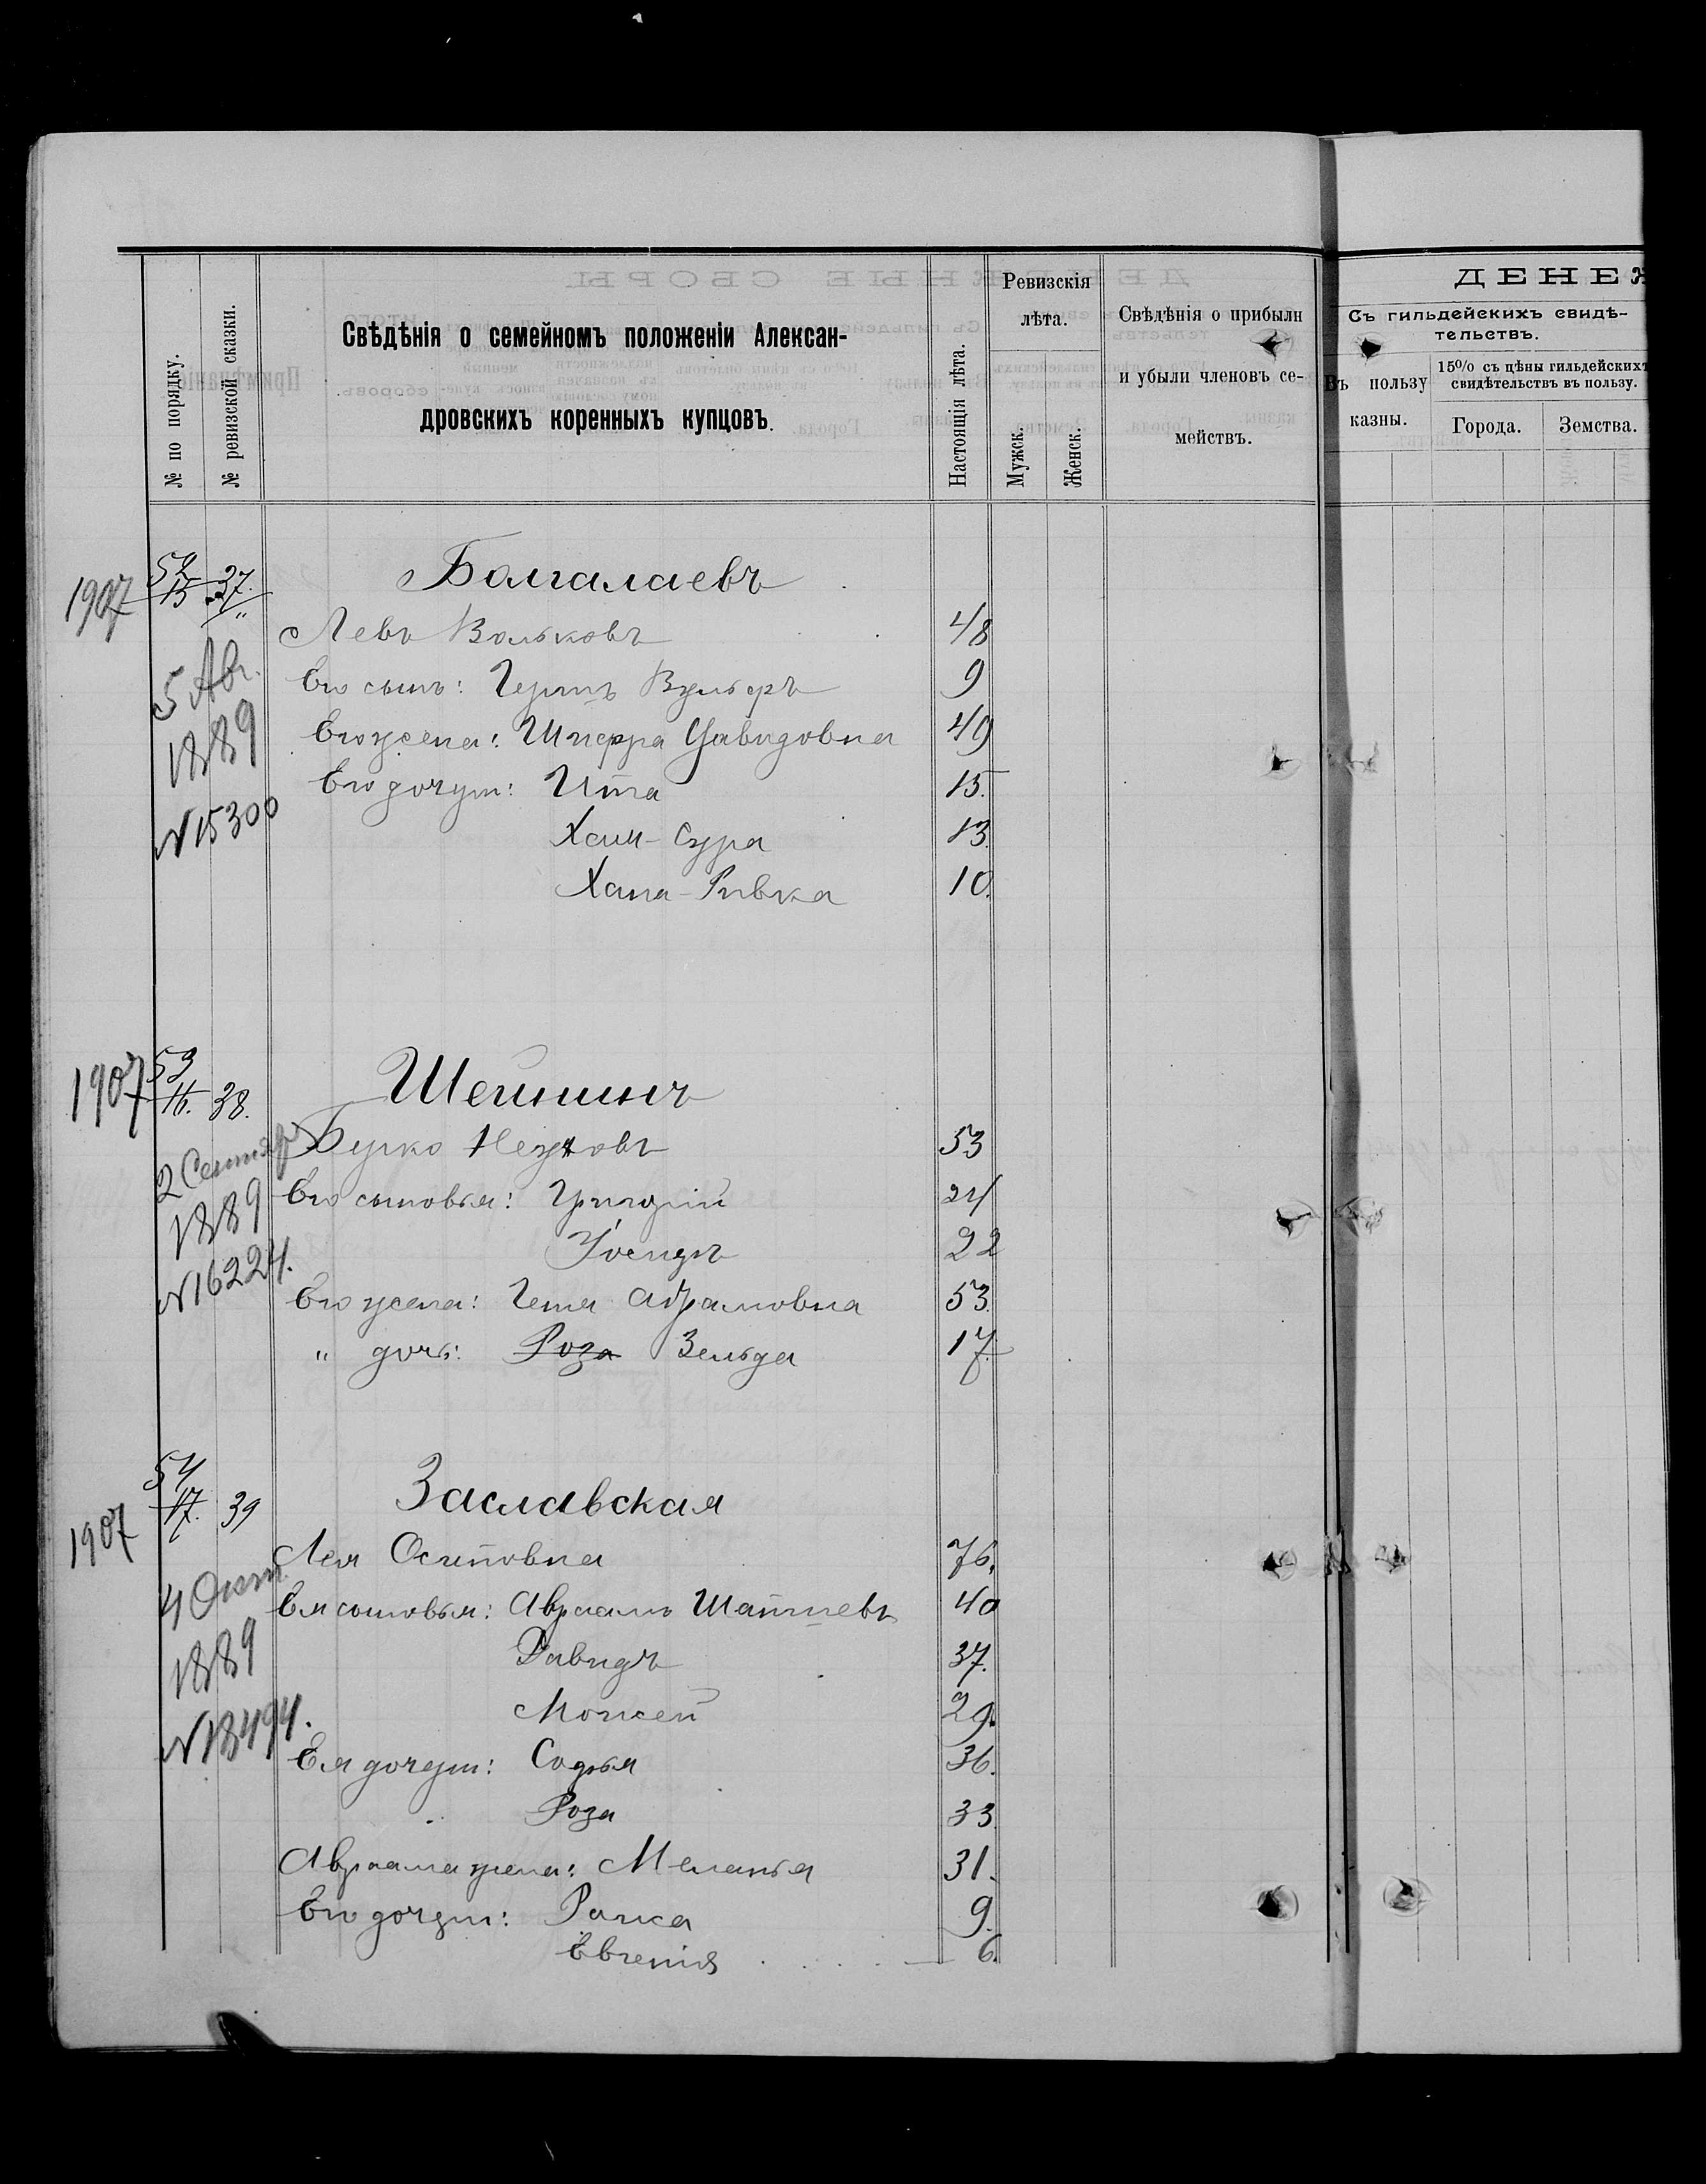 № по порядку.
№ ревизской сказки.
Свѣдѣнія о семейномъ положеніи Алексан-
дровскихъ коренныхъ купцовъ.
Настоящія лѣта.
Ревизскія
лѣта.
Мужск.
Женск.
Свѣдѣнія о прибыли
и убыли членовъ се-
мействъ.
ДЕНЕЖ
Съ гильдейскихъ свидѣ-
тельствъ.
Въ пользу
казны.
15% съ цѣны гильдейскихъ
свидѣтельствъ въ пользу.
Города.
Земства.
1907 52 15 37.
5 Авг.
1889
№ 15300
Левъ Вольковъ 48
Его сынъ: Герцъ Вульфъ 9
Его жена: Шифра Давидовна 49
Его дочери: Ита 15.
Хая-Сура 13.
Хана-Ривка 10.
1907 53 16. 38. Шейнинъ
2 Сентяб
1889
№ 16224.
Берко 53
Его сыновья: Григорій 24
Іосифъ 22
Его жена: Геня Абрамовна 53.
" дочь: Роза Зельда 17.
1907 54 17. 39 Заславская
4 Окт.
1889
№ 18494.
Лея Осиповна 76.
Ея сыновья: Авраамъ 40
Давидъ 37.
Моисей 29.
Ея дочери: Софья 36.
Роза 33.
Авраама жена: Меланья 31.
Его дочери: Раиса 9.
Евгенія 6.